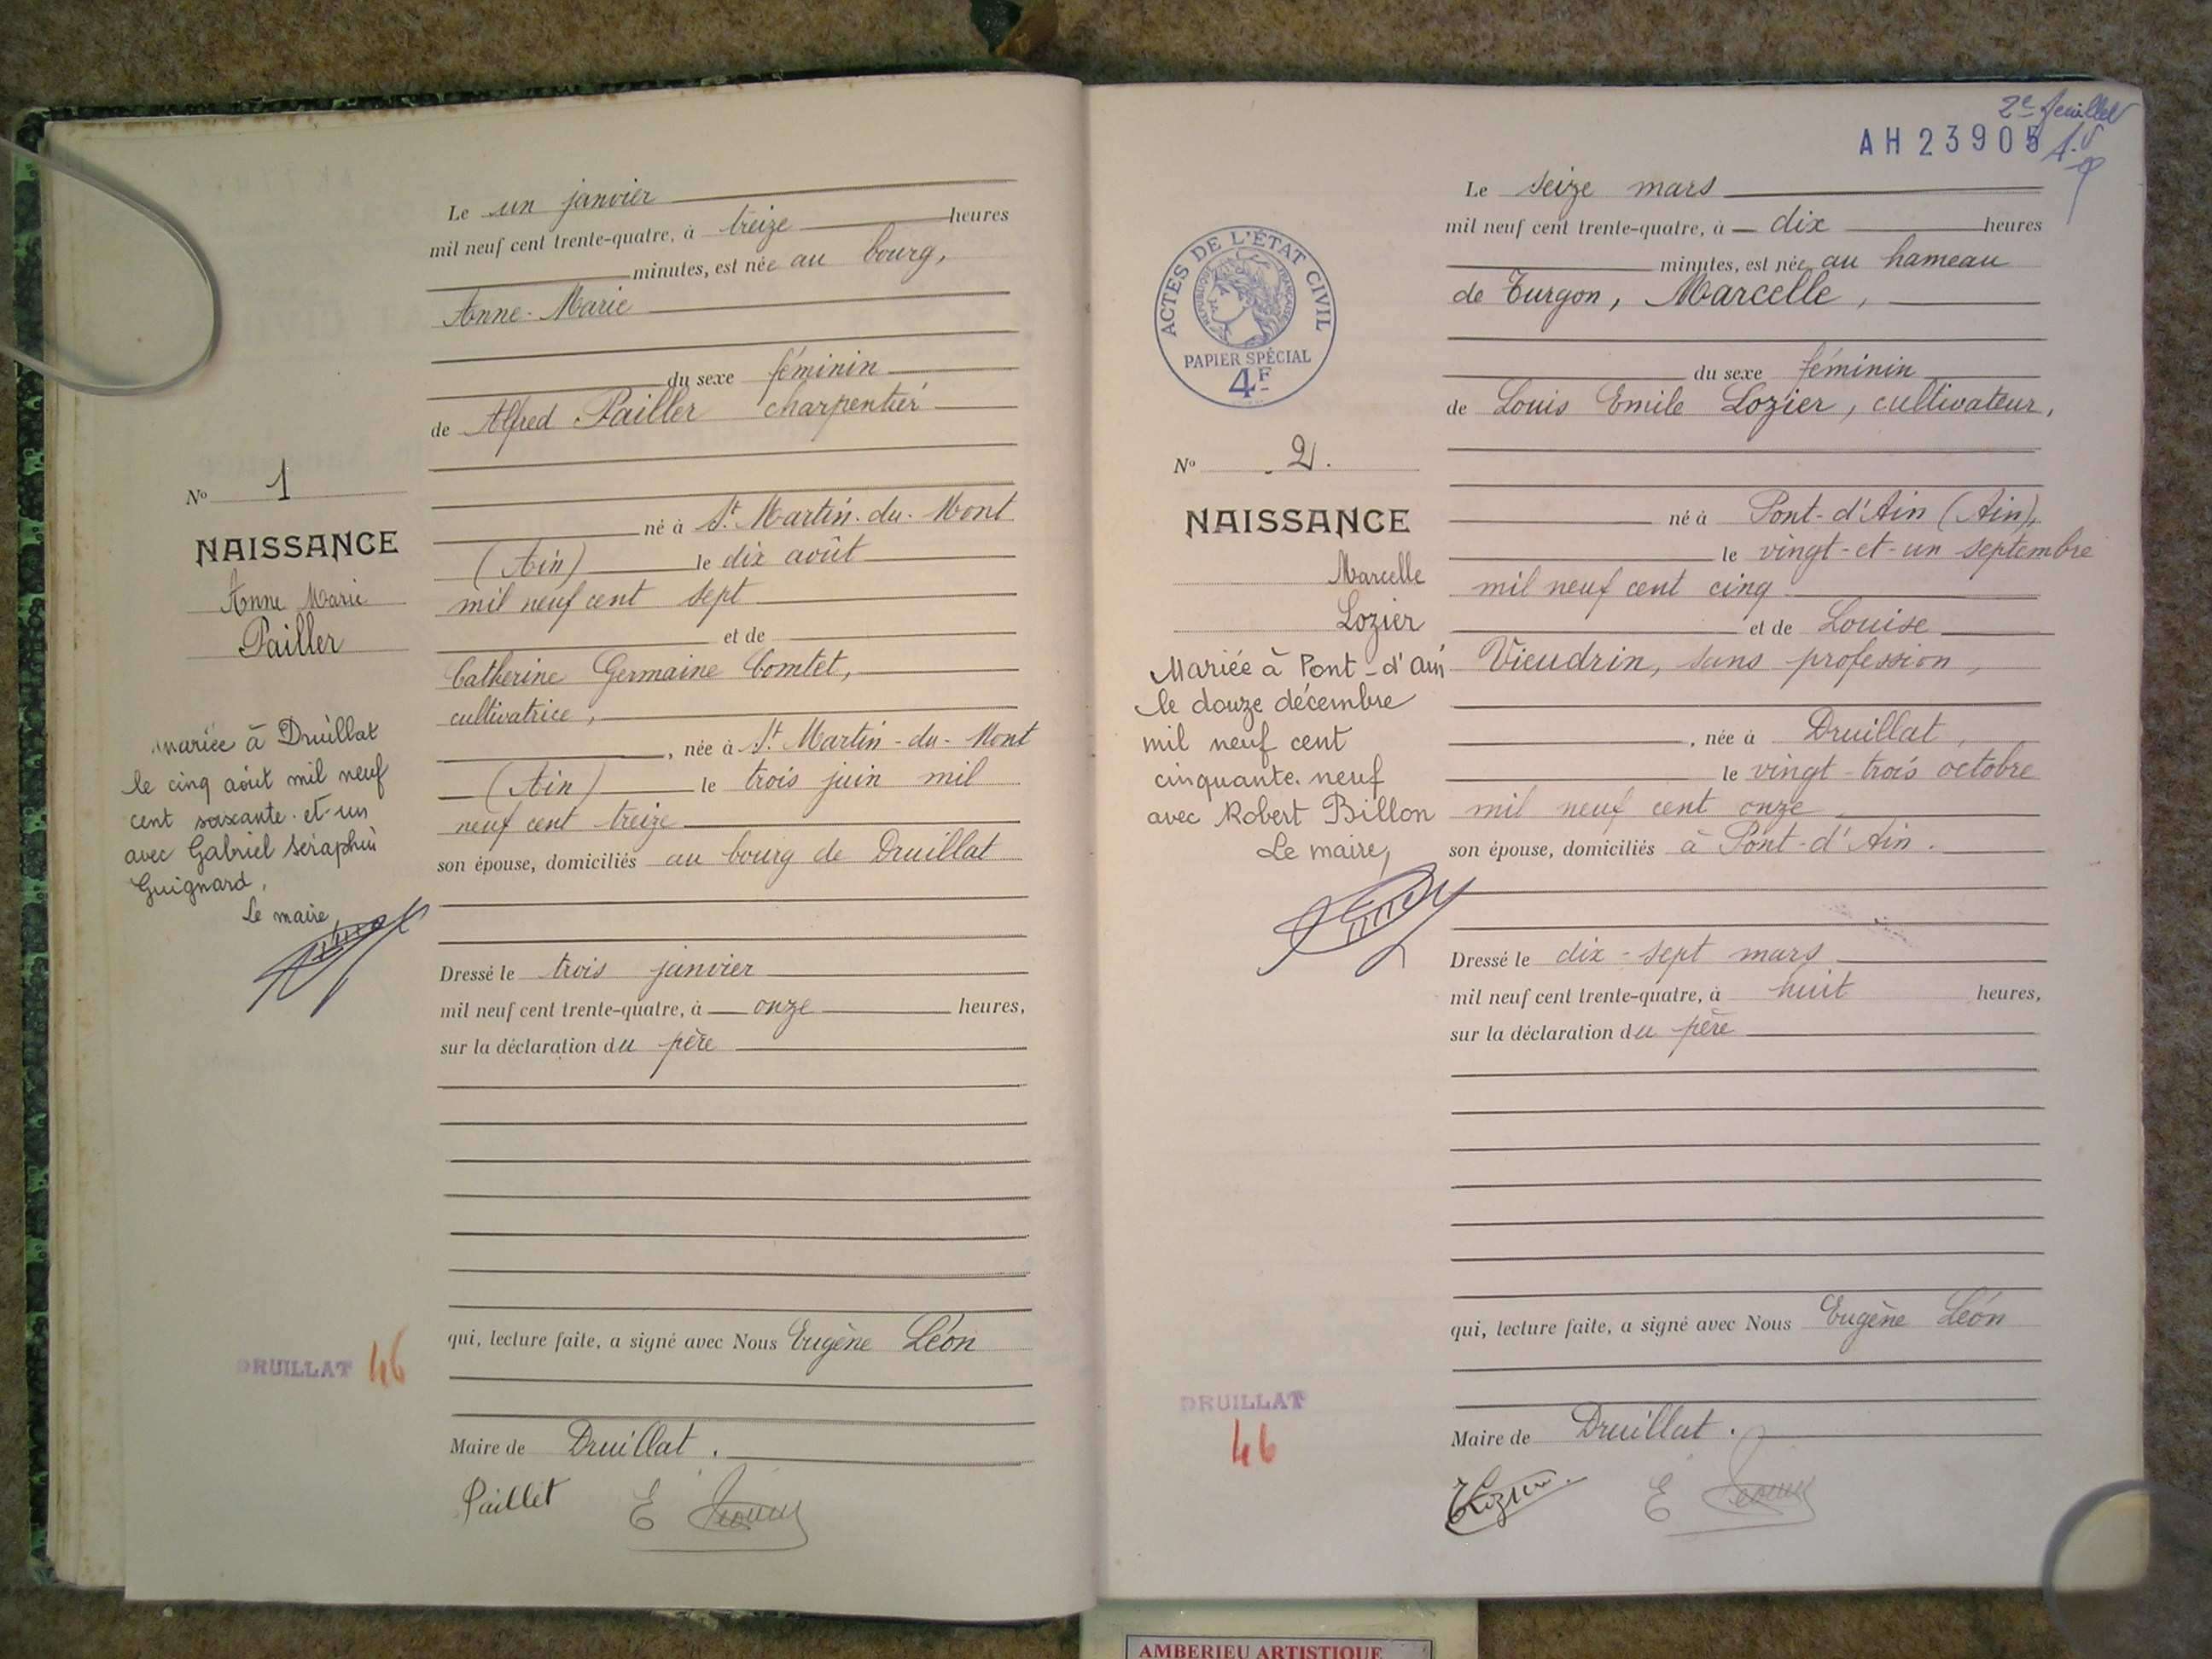 Le un janvier
mil neuf cent trente-quatre, à treize heures
minutes, est née au bourg,
Anne-Marie
du sexe féminin
de Alfred Pailler charpentier
né à St Martin-du-Mont
(Ain) le dix août
mil neuf cent sept
et de
Catherine Germaine Comtet,
cultivatrice,
, née à St Martin-du-Mont
(Ain) le trois juin mil
neuf cent treize
son épouse, domiciliés au bourg de Druillat
Dressé le trois janvier
mil neuf cent trente-quatre, à onze heures,
sur la déclaration du père
qui, lecture faite, a signé avec Nous Eugène Léon
Maire de Druillat.
Paillet E
No 1
NAISSANCE
Anne Marie
Pailler
mariée à Druillat
le cinq août mil neuf
cent soixante-et-un
avec Gabriel Séraphin
Guignard.
Le maire,
DRUILLAT 46
2e feuillet
AH 23905
Le seize mars
mil neuf cent trente-quatre, à dix heures
minutes, est née au hameau
de Turgon, Marcelle,
du sexe féminin
de Louis Emile Lozier, cultivateur,
né à Pont-d'Ain (Ain),
le vingt-et-un septembre
mil neuf cent cinq
et de Louise
Vieudrin, sans profession,
, née à Druillat,
le vingt-trois octobre
mil neuf cent onze
son épouse, domiciliés à Pont-d'Ain.
Dressé le dix-sept mars
mil neuf cent trente-quatre, à huit heures,
sur la déclaration du père
qui, lecture faite, a signé avec Nous Eugène Léon
Maire de Druillat.
E
ACTES DE L'ÉTAT CIVIL
RÉPUBLIQUE FRANÇAISE
PAPIER SPÉCIAL
4F
No 2.
NAISSANCE
Marcelle
Lozier
Mariée à Pont-d'Ain
le douze décembre
mil neuf cent
cinquante-neuf
avec Robert Billon
Le maire,
DRUILLAT
46
AMBERIEU ARTISTIQUE